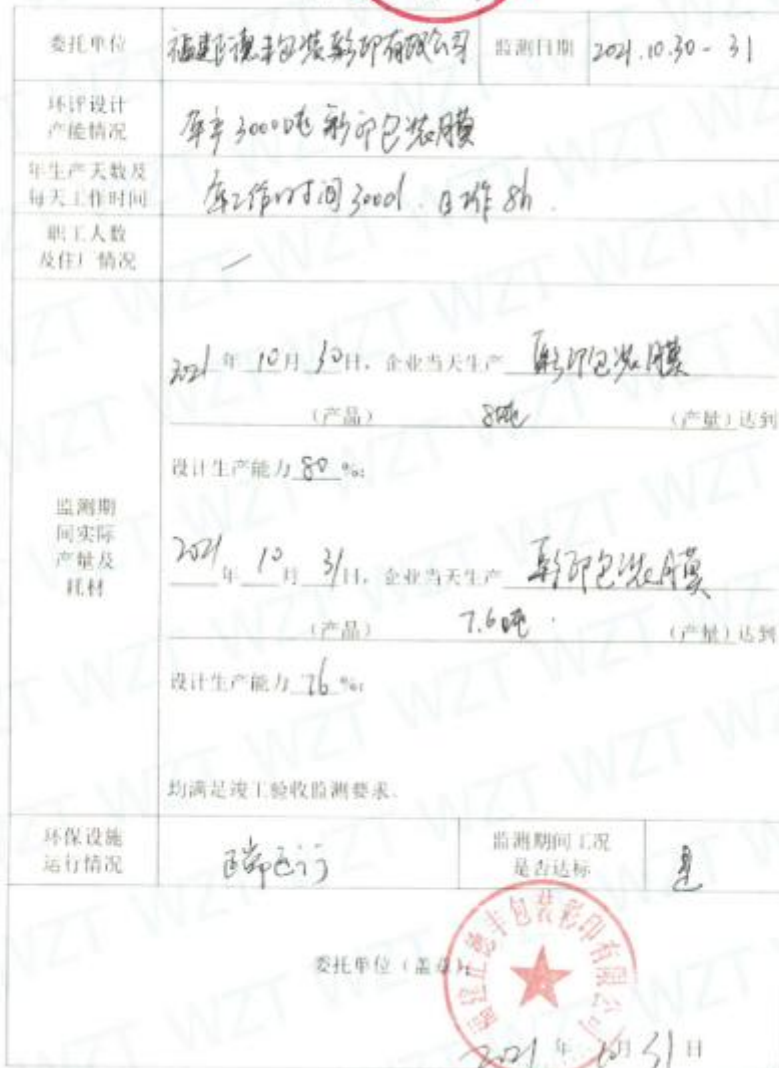 委托单位 福建正德丰包装彩印有限公司 监测日期 2021.10.30-31
环评设计
产能情况
年产3000吨彩印包装膜
年生产天数及
每天工作时间
年工作时间300d.日工作8h.
职工人数
及住厂情况
/
监测期
间实际
产量及
耗材
2021年10月30日，企业当天生产 彩印包装膜
（产品） 8吨 （产量）达到
设计生产能力80%;
2021年10月31日，企业当天生产 彩印包装膜
（产品） 7.6吨 （产量）达到
设计生产能力76%;
均满足竣工验收监测要求。
环保设施
运行情况
正常运行
监测期间工况
是否达标
是
委托单位（盖章）:
福建正德丰包装彩印有限公司
2021年10月31日
WZT